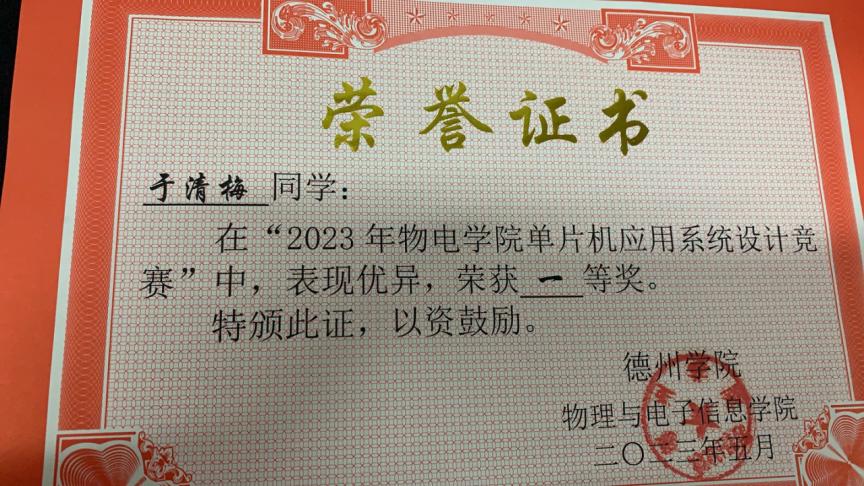 荣誉证书
于清梅 同学：
在“2023 年物电学院单片机应用系统设计竞
赛”中，表现优异，荣获 一 等奖。
特颁此证，以资鼓励。
德州学院
物理与电子信息学院
二〇二三年五月